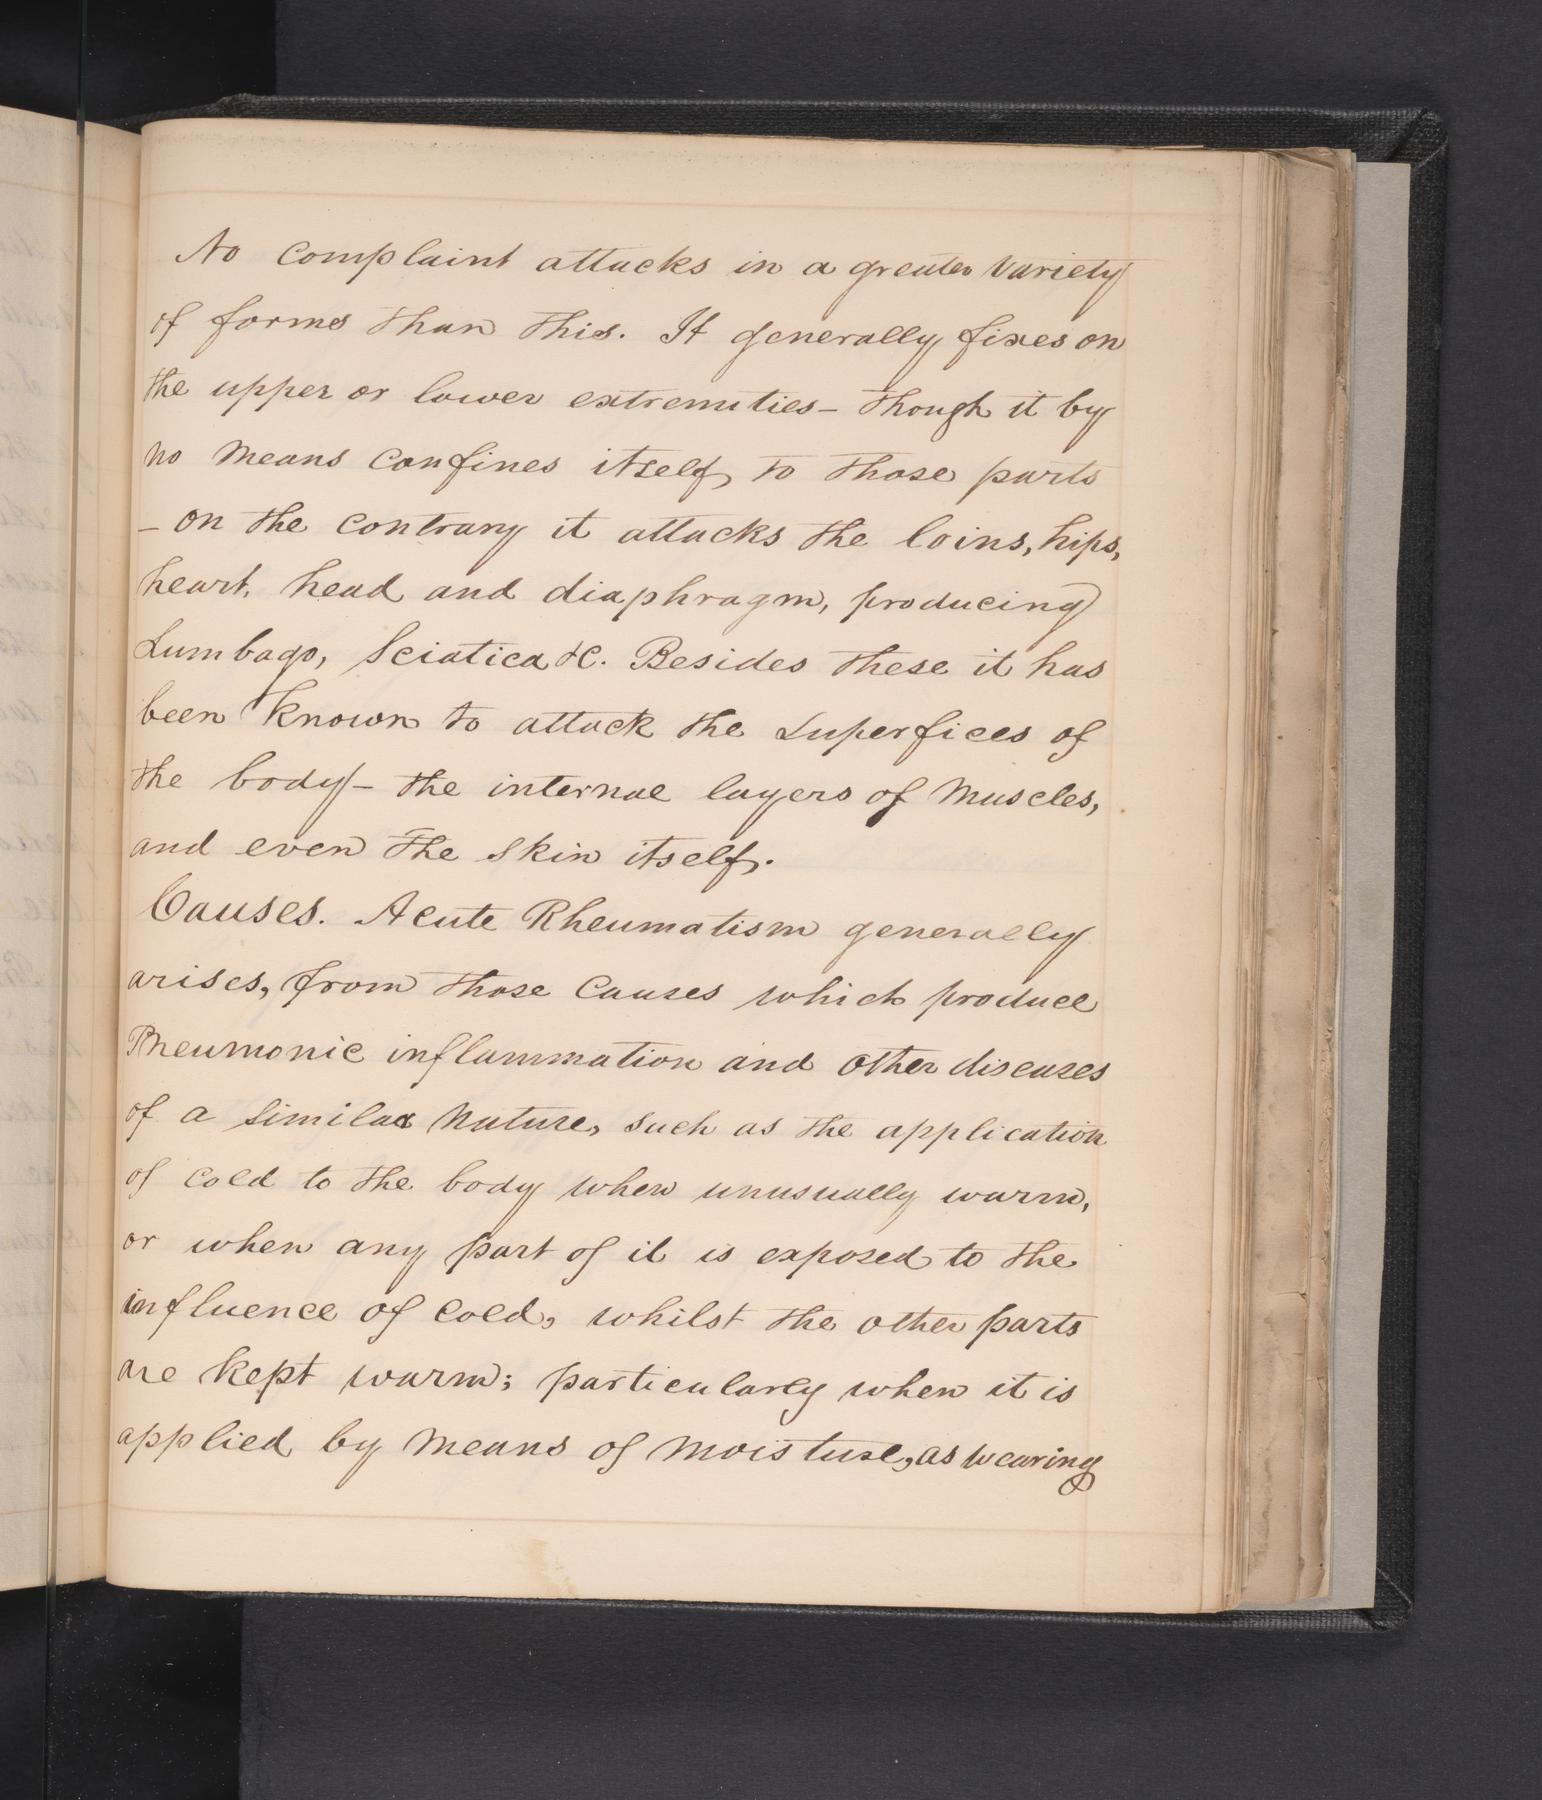 No complaint attacks in a greater variety
of forms than this. It generally fixes on
the upper or lower extremities – though it by
no means confines itself to those parts
– on the contrary it attacks the loins, hips,
heart, head and diaphragm, producing
Lumbago, Sciatica &c. Besides these it has
been known to attack the Superfices of
the body – the internal layers of Muscles,
and even the skin itself.
Causes. Acute Rheumatism generally
arises, from those Causes which produce
Pneumonic inflammation and other diseases
of a similar Nature, such as the application
of cold to the body when unusually warm,
or when any part of it is exposed to the
influence of cold, whilst the other parts
are kept warm; particularly when it is
applied by means of moisture, as wearing